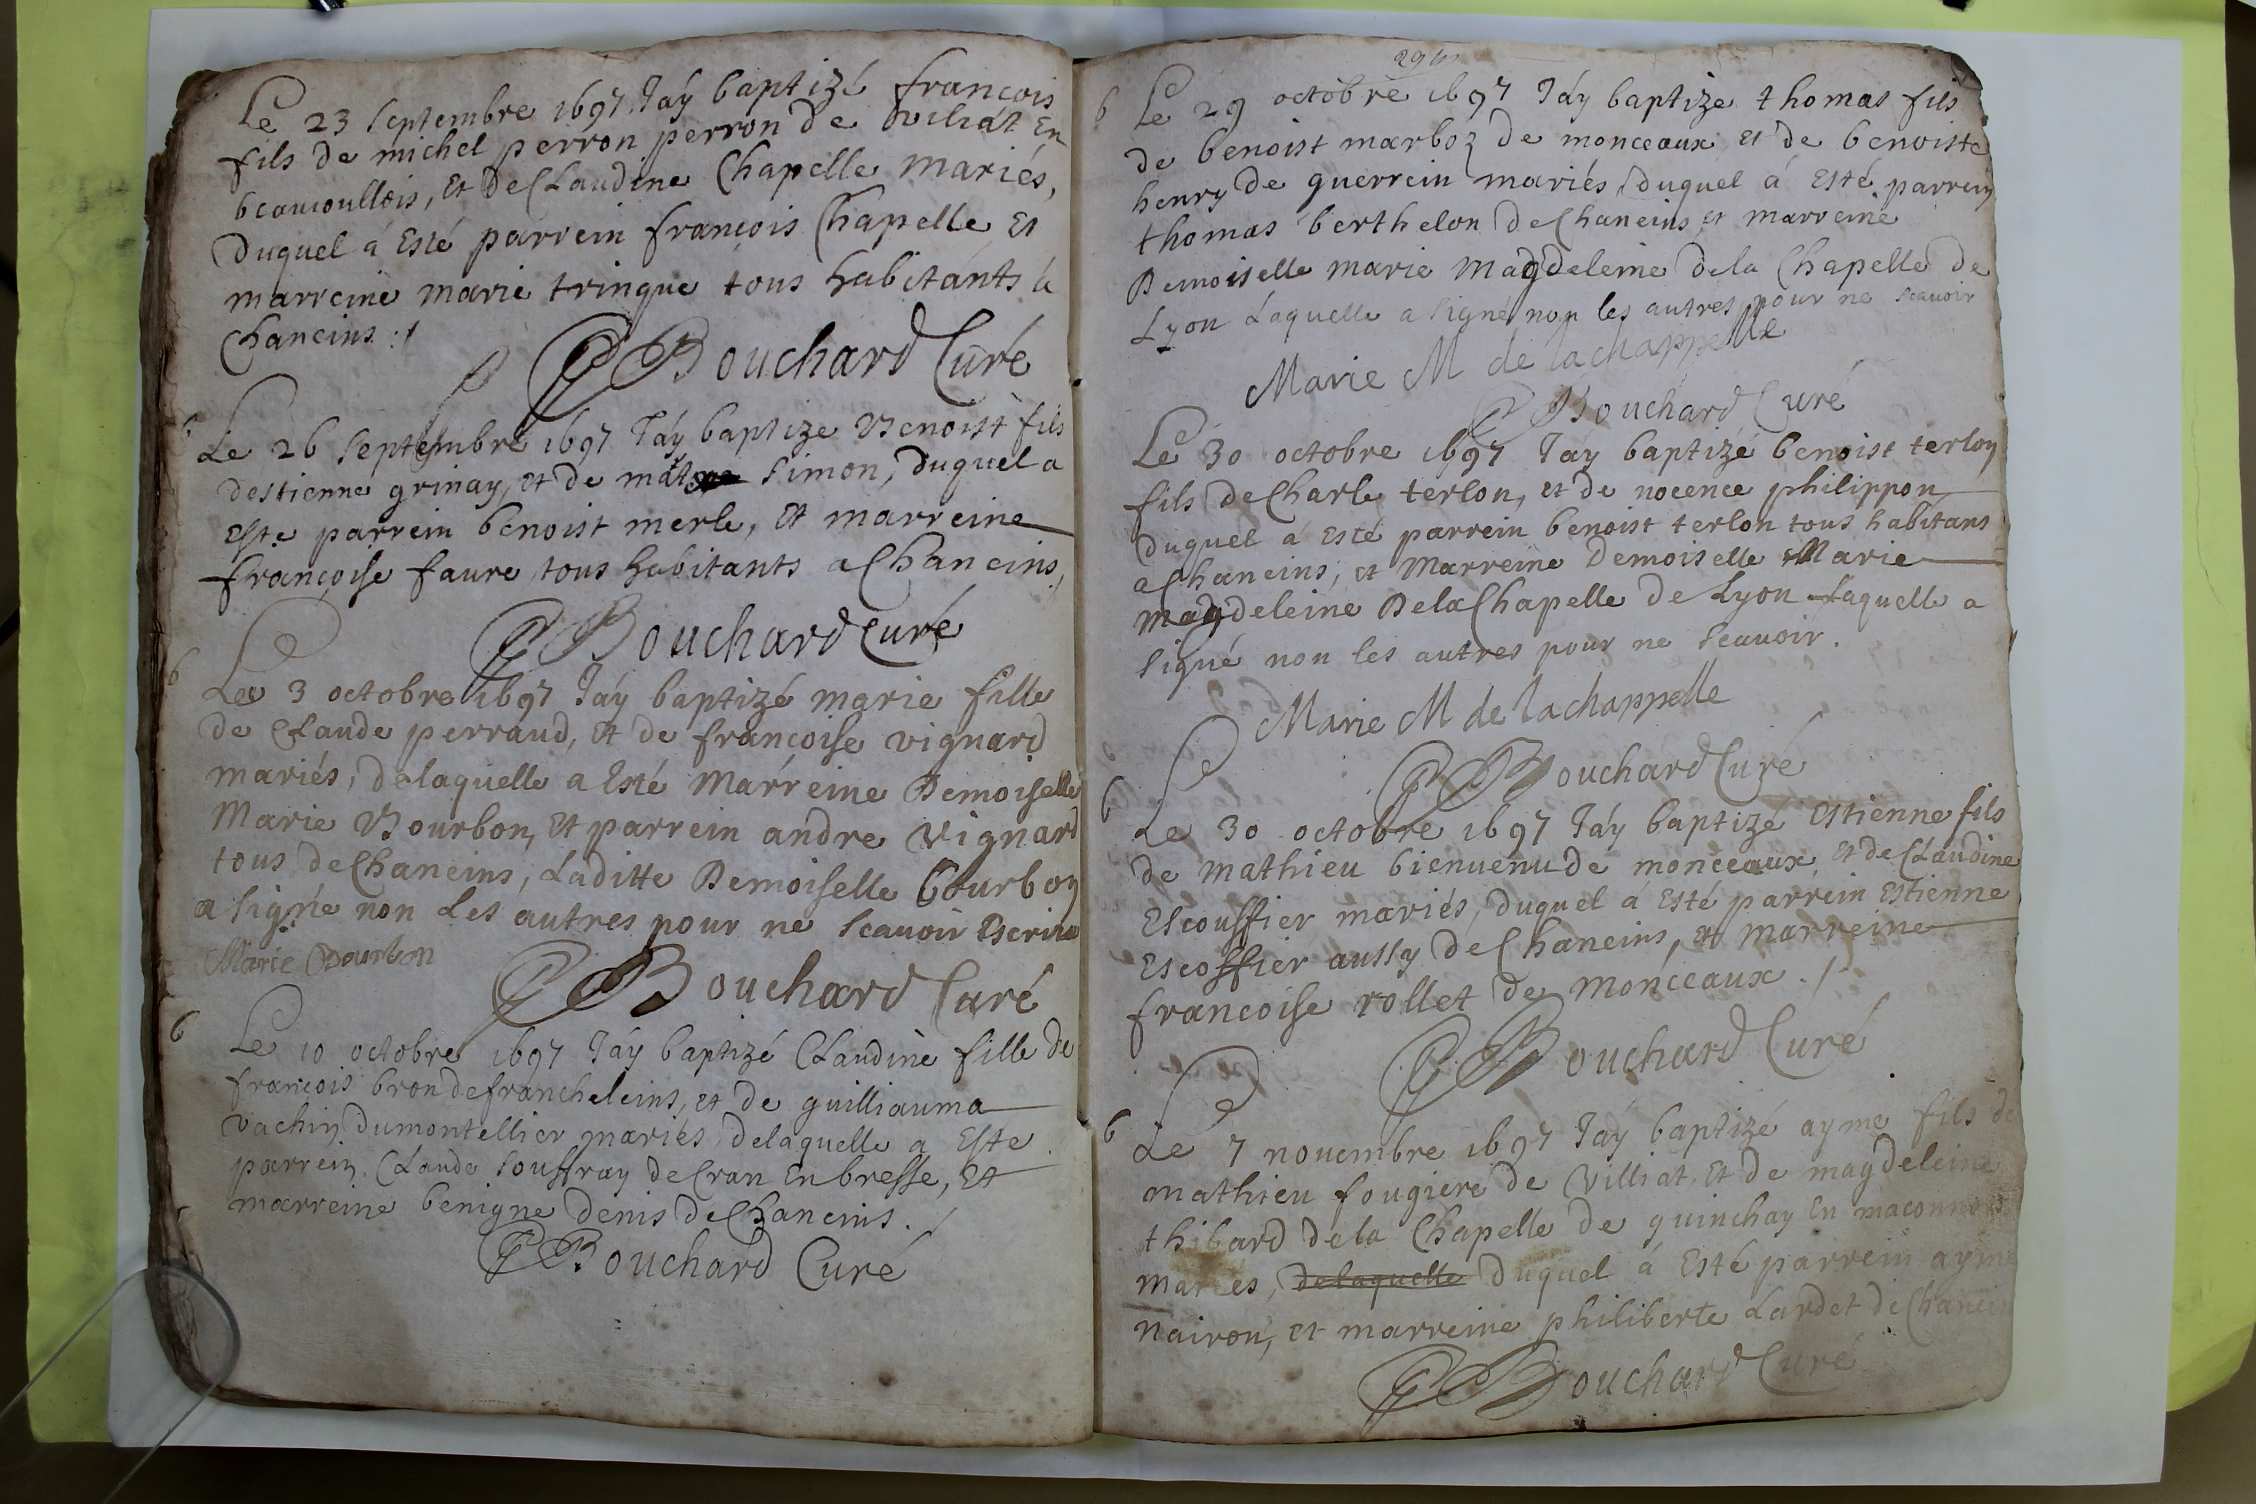 Le 23 Septembre 1697 Jáy baptizé françois
fils de michel perron perron de villiat En
beaujoullois, Et De Claudine Chapelle Mariés,
Duquel á Esté parrein françois Chapelle Et
marreine marie trinque tous habitants á
Chaneins ./
Bouchard Curé
6
Le 26 Septembre 1697 Jáy baptize Benoist fils
destienne grinay, Et de Simon, duquel a
Este parrein benoist merle, Et marreine
françoise faure tous habitants a Chaneins,
Bouchard Curé
6
Le 3 octobre 1697 Jáy baptizé marie fille
de Claude perraud, Et de françoise vignard
mariés, delaquelle a Esté Marreine Demoiselle
Marie Bourbon, Et parrein andre Vignard
tous de Chaneins, Laditte Demoiselle Bourbon
a Signé non Les autres pour ne Scauoir Escrire
Marie Bourbon
Bouchard Curé
6
Le 10 octobre 1697 Jáy baptizé Claudine fille de
françois bron de francheleins, et de guilliauma
Vachin dumontellier mariés delaquelle a Este
parrein Claude Souffray de Cran En bresse, Et
marreine benigne denis de Chaneins ./
Bouchard Curé
29
6
Le 29 octobre 1697 Jáy baptize thomas fils
de benoist marboz de monceaux et de benoiste
henry de guerrein mariés, duquel á Esté parrein
thomas berthelon de Chaneins, et marreine
Demoiselle marie Magdeleine dela Chapelle de
Lyon Laquelle a Signé non les autres pour ne scauoir
Marie M de lachappelle
Bouchard Curé
Le 30 octobre 1697 Jáy baptizé benoist terlon
fils de Charle terlon, et de nocence philippon
duquel á Esté parrein benoist terlon tous habitans
a Chaneins, et Marreine Demoiselle Marie
magdeleine Dela Chapelle de Lyon Laquelle a
Signé non les autres pour ne Scauoir.
Marie M de lachappelle
Bouchard Curé
6
Le 30 octobre 1697 Jáy baptizé Estienne fils
de mathieu bienuenu de monceaux, et de Claudine
Escouffier mariés, duquel á Esté parrein Estienne
Escoffier aussy de Chaneins, et marreine
francoise rollet de Monceaux ./
Bouchard Curé
6
Le 7 nouembre 1697 Jáy baptizé ayme fils de
mathieu fougiere de Villiat, Et de magdeleine
thibard dela Chapelle de guinchay En maconnois
mariés, delaquelle duquel á Esté parrein ayme
nairon, et marreine philiberte Lardet de Chaneins
Bouchard Curé